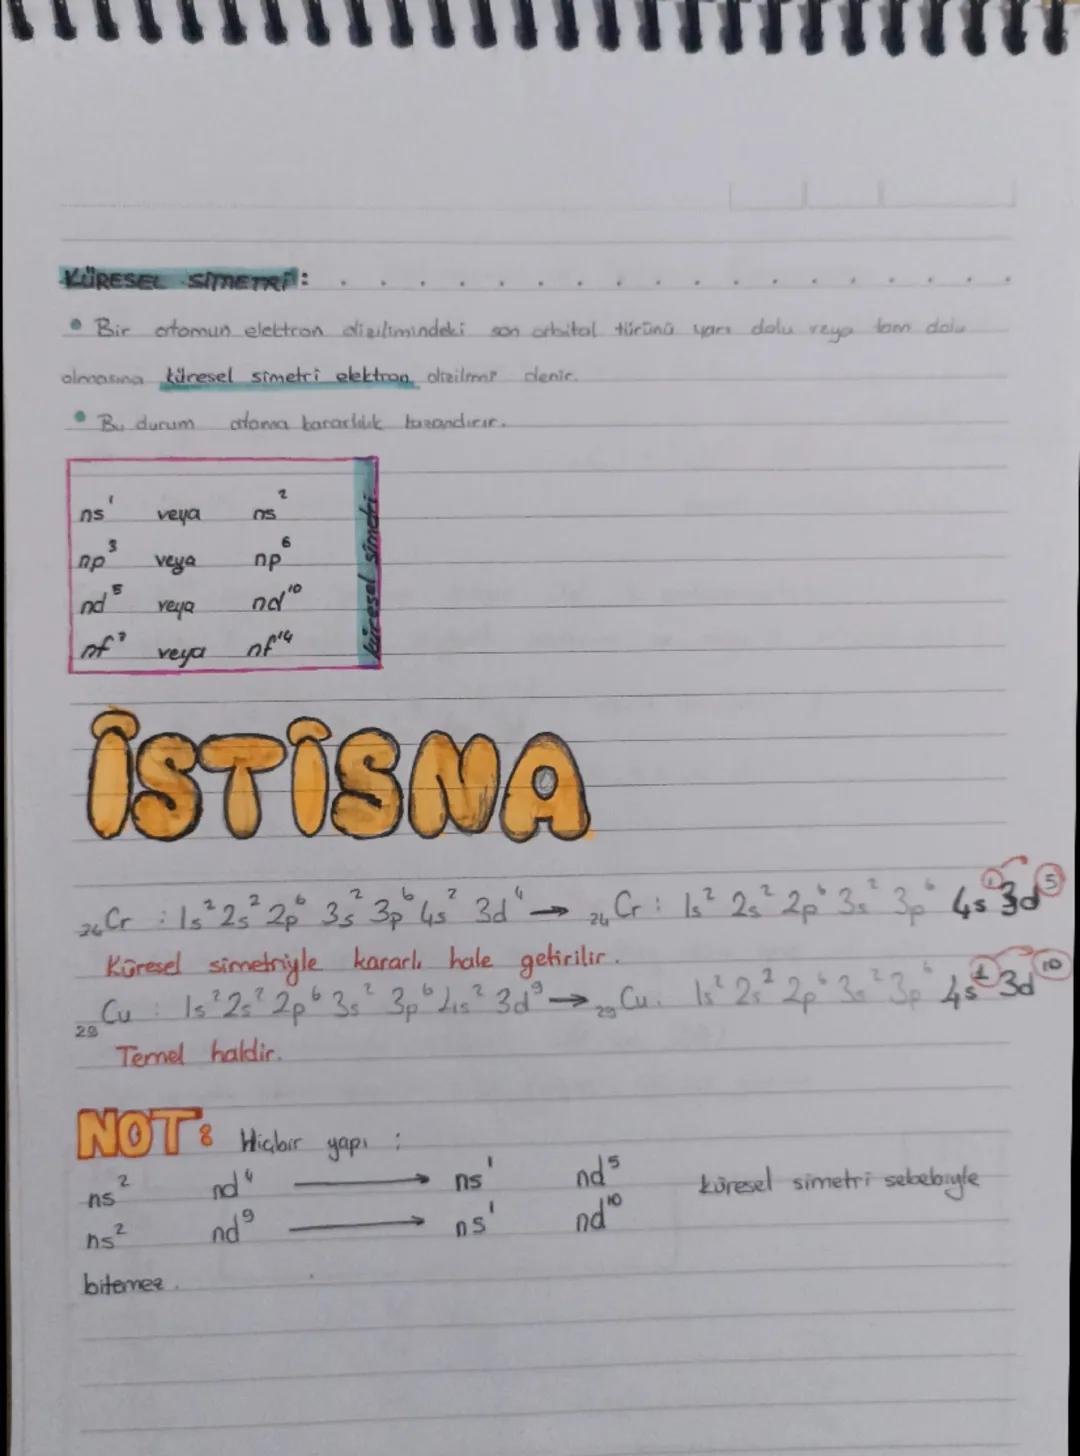 KÜRESEL SİMETRİ:
• Bir atomun elektron dizilimindeki son orbital türünü yarı dolu veya tam dolu
olmasına küresel simetri elektron dizilimi denir.
• Bu durum atoma kararlılık kazandırır.
ns¹ veya ns²
np³ veya np⁶
nd⁵ veya nd¹⁰
nf⁷ veya nf¹⁴
küresel simetri
İSTİSNA
₂₄Cr : 1s² 2s² 2p⁶ 3s² 3p⁶ 4s² 3d⁴ → ₂₄Cr : 1s² 2s² 2p⁶ 3s² 3p⁶ 4s¹ 3d⁵
Küresel simetriyle kararlı hale getirilir.
₂₉Cu : 1s² 2s² 2p⁶ 3s² 3p⁶ 4s² 3d⁹ → ₂₉Cu : 1s² 2s² 2p⁶ 3s² 3p⁶ 4s¹ 3d¹⁰
Temel haldir.
NOT: Hiçbir yapı :
ns² nd⁴ → ns¹ nd⁵ küresel simetri sebebiyle
ns² nd⁹ → ns¹ nd¹⁰
bitemez.